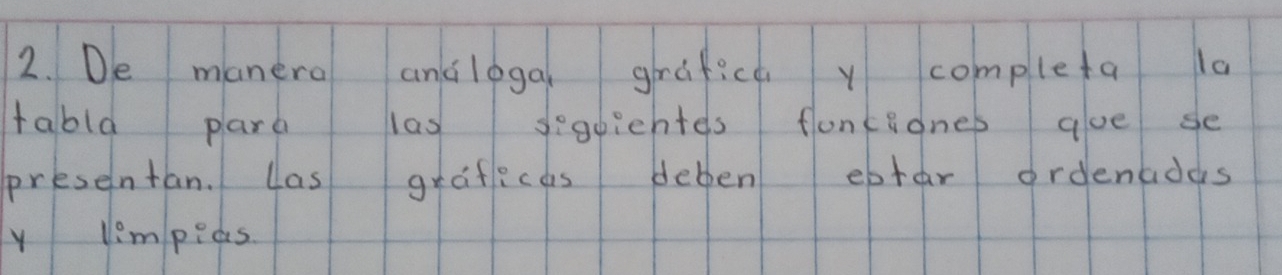 2. De manera análoga, gráfica y completa la
tabla para las siguientes funciones que se
presentan. Las gráficas deben estar ordenadas
y limpias.